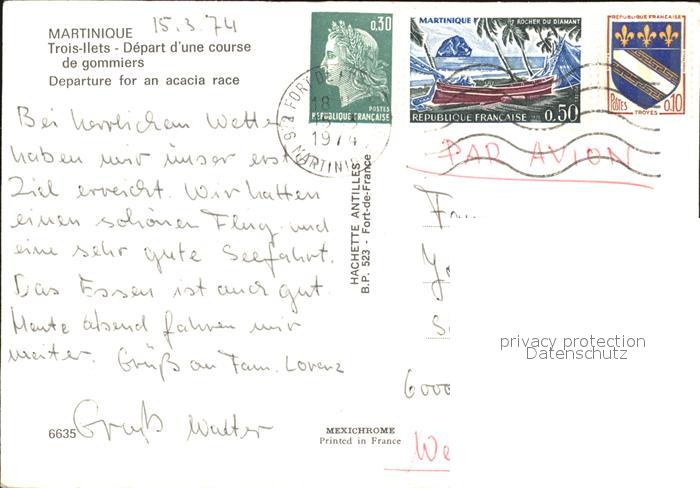 15.3.74
MARTINIQUE
Trois-Ilets - Départ d'une course
de gommiers
Departure for an acacia race
0,30
POSTES
RÉPUBLIQUE FRANÇAISE
MARTINIQUE
ROCHER DU DIAMANT
RÉPUBLIQUE FRANÇAISE 0,50
REPUBLIQUE FRANÇAISE
POSTES 0,10
TROYES
FORT DE
18
1974
MARTINI
PAR AVION
Bei herrlichem Wetter
haben wir unser erst
Ziel erreicht. Wir hatten
einen schönen Flug und
eine sehr gute Seefahrt.
Das Essen ist auch gut.
Heute abend fahren wir
weiter. Grüß an Fam. Lorenz
Gruß Walter
HACHETTE ANTILLES
B.P. 523 - Fort-de-France
privacy protection
Datenschutz
6000
We
6635
MEXICHROME
Printed in France